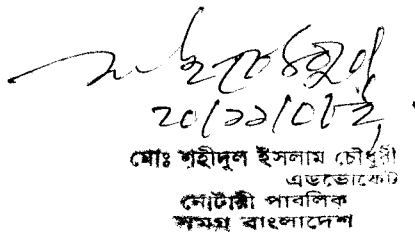 ২০/১১/০৮ইং
মোঃ শহীদুল ইসলাম চৌধুরী
এডভোকেট
নোটারী পাবলিক
সমগ্র বাংলাদেশ